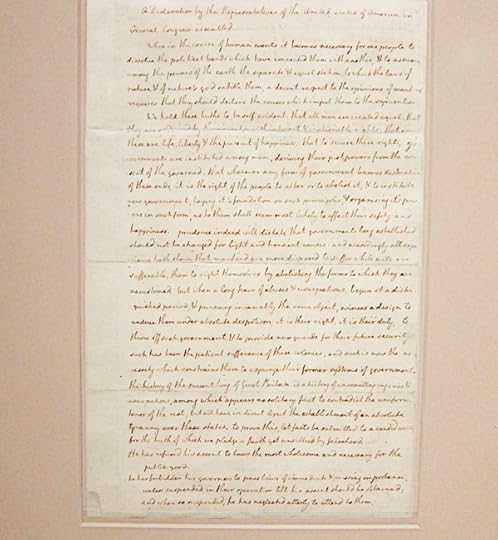 A Declaration by the Representatives of the United States of America in
General Congress assembled.
When in the course of human events it becomes necessary for one people to
dissolve the political bands which have connected them with another, & to assume
among the powers of the earth the separate & equal station to which the laws of
nature & of nature's god entitle them, a decent respect to the opinions of mankind
requires that they should declare the causes which impel them to the separation.
We hold these truths to be self evident. that all men are created equal; that
they are endowed by their creator with inherent & inalienable rights; that
these are life, liberty & the pursuit of happiness; that to secure these rights, go-
vernments are instituted among men, deriving their just powers from the con-
sent of the governed; that whenever any form of government becomes destructive
of these ends, it is the right of the people to alter or to abolish it, & to institute
new government, laying it's foundation on such principles & organising it's pow-
ers in such form, as to them shall seem most likely to effect their safety and
happiness. prudence indeed will dictate that governments long established
should not be changed for light and transient causes. and accordingly all expe-
rience hath shewn that mankind are more disposed to suffer while evils are
sufferable, than to right themselves by abolishing the forms to which they are
accustomed. but when a long train of abuses & usurpations, begun at a distin-
guished period, & pursuing invariably the same object, evinces a design to
reduce them under absolute despotism, it is their right, it is their duty, to
throw off such government & to provide new guards for their future security.
such has been the patient sufferance of these colonies, and such is now the ne-
cessity which constrains them to expunge their former systems of government.
the history of the present king of Great Britain is a history of unremitting injuries &
usurpations, among which appears no solitary fact to contradict the uniform
tenor of the rest, but all have in direct object the establishment of an absolute
tyranny over these states. to prove this, let facts be submitted to a candid world
for the truth of which we pledge a faith yet unsullied by falsehood.
He has refused his assent to laws the most wholesome and necessary for the
public good.
he has forbidden his governors to pass laws of immediate & pressing importance,
unless suspended in their operation till his assent should be obtained;
and when so suspended, he has neglected utterly to attend to them.